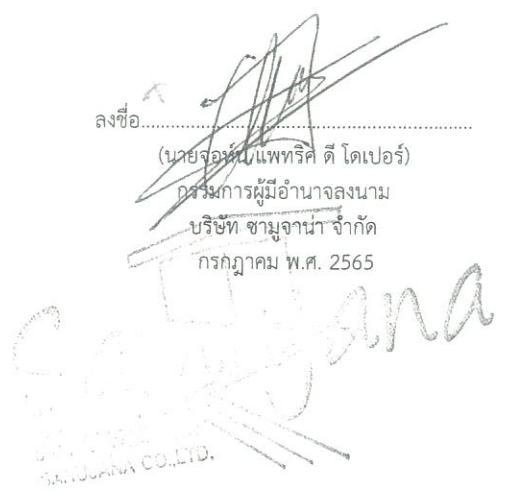 ลงชื่อ................................................................
(นายจอห์น แพทริค ดี โดเปอร์)
กรรมการผู้มีอำนาจลงนาม
บริษัท ซามูจาน่า จำกัด
กรกฎาคม พ.ศ. 2565
Samujana
SAMUJANA CO.,LTD.